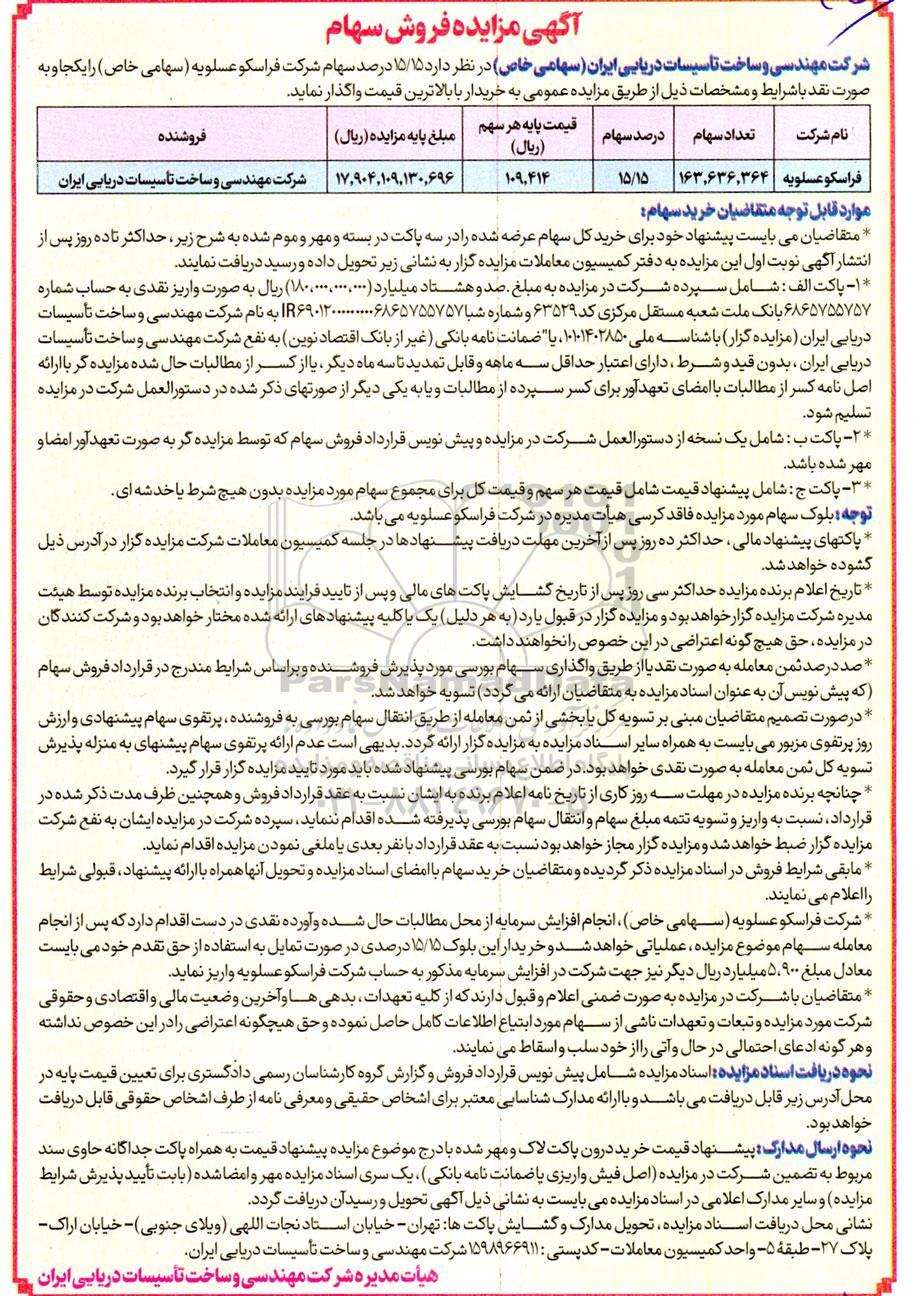 آگهی مزایده فروش سهام
شرکت مهندسی و ساخت تأسیسات دریایی ایران (سهامی خاص) در نظر دارد ۱۵/۱۵ درصد سهام شرکت فراسکو عسلویه (سهامی خاص) را یکجا و به
صورت نقد با شرایط و مشخصات ذیل از طریق مزایده عمومی به خریدار با بالاترین قیمت واگذار نماید.
نام شرکت تعداد سهام درصد سهام قیمت پایه هر سهم (ریال) مبلغ پایه مزایده (ریال) فروشنده
فراسکو عسلویه ۱۶۳,۶۳۶,۳۶۴ ۱۵/۱۵ ۱۰۹,۴۱۴ ۱۷,۹۰۴,۱۰۹,۱۳۰,۶۹۶ شرکت مهندسی و ساخت تأسیسات دریایی ایران
موارد قابل توجه متقاضیان خرید سهام:
* متقاضیان می بایست پیشنهاد خود برای خرید کل سهام عرضه شده را در سه پاکت در بسته و مهر و موم شده به شرح زیر، حداکثر تا ده روز پس از
انتشار آگهی نوبت اول این مزایده به دفتر کمیسیون معاملات مزایده گزار به نشانی زیر تحویل داده و رسید دریافت نمایند.
* ۱- پاکت الف : شامل سپرده شرکت در مزایده به مبلغ .صد و هشتاد میلیارد (۱۸۰,۰۰۰,۰۰۰,۰۰۰) ریال به صورت واریز نقدی به حساب شماره
۶۸۶۵۷۵۵۷۵۷ بانک ملت شعبه مستقل مرکزی کد ۶۳۵۲۹ و شماره شبا به نام شرکت مهندسی و ساخت تأسیسات
دریایی ایران (مزایده گزار) با شناسه ملی ۱۰۱۰۱۴۰۲۸۵۰، یا "ضمانت نامه بانکی (غیر از بانک اقتصاد نوین) به نفع شرکت مهندسی و ساخت تأسیسات
دریایی ایران ، بدون قید و شرط ، دارای اعتبار حداقل سه ماهه و قابل تمدید تا سه ماه دیگر ، یا از کسر از مطالبات حال شده مزایده گر با ارائه
اصل نامه کسر از مطالبات با امضای تعهدآور برای کسر سپرده از مطالبات و یا به یکی دیگر از صورتهای ذکر شده در دستورالعمل شرکت در مزایده
تسلیم شود.
* ۲- پاکت ب : شامل یک نسخه از دستورالعمل شرکت در مزایده و پیش نویس قرارداد فروش سهام که توسط مزایده گر به صورت تعهدآور امضا و
مهر شده باشد.
* ۳- پاکت ج : شامل پیشنهاد قیمت شامل قیمت هر سهم و قیمت کل برای مجموع سهام مورد مزایده بدون هیچ شرط یا خدشه ای .
توجه: بلوک سهام مورد مزایده فاقد کرسی هیأت مدیره در شرکت فراسکو عسلویه می باشد.
* پاکتهای پیشنهاد مالی ، حداکثر ده روز پس از آخرین مهلت دریافت پیشنهادها در جلسه کمیسیون معاملات شرکت مزایده گزار در آدرس ذیل
گشوده خواهد شد.
* تاریخ اعلام برنده مزایده حداکثر سی روز پس از تاریخ گشایش پاکت های مالی و پس از تایید فرایند مزایده و انتخاب برنده مزایده توسط هیئت
مدیره شرکت مزایده گزار خواهد بود و مزایده گزار در قبول یا رد (به هر دلیل) یک یا کلیه پیشنهادهای ارائه شده مختار خواهد بود و شرکت کنندگان
در مزایده ، حق هیچ گونه اعتراضی در این خصوص را نخواهند داشت.
* صد درصد ثمن معامله به صورت نقد یا از طریق واگذاری سهام بورسی مورد پذیرش فروشنده و براساس شرایط مندرج در قرارداد فروش سهام
(که پیش نویس آن به عنوان اسناد مزایده به متقاضیان ارائه می گردد) تسویه خواهد شد.
* درصورت تصمیم متقاضیان مبنی بر تسویه کل یا بخشی از ثمن معامله از طریق انتقال سهام بورسی به فروشنده ، پرتفوی سهام پیشنهادی و ارزش
روز پرتفوی مزبور می بایست به همراه سایر اسناد مزایده به مزایده گزار ارائه گردد. بدیهی است عدم ارائه پرتفوی سهام پیشنهای به منزله پذیرش
تسویه کل ثمن معامله به صورت نقدی خواهد بود. در ضمن سهام بورسی پیشنهاد شده باید مورد تایید مزایده گزار قرار گیرد.
* چنانچه برنده مزایده در مهلت سه روز کاری از تاریخ نامه اعلام برنده به ایشان نسبت به عقد قرارداد فروش و همچنین ظرف مدت ذکر شده در
قرارداد، نسبت به واریز و تسویه تتمه مبلغ سهام و انتقال سهام بورسی پذیرفته شده اقدام ننماید، سپرده شرکت در مزایده ایشان به نفع شرکت
مزایده گزار ضبط خواهد شد و مزایده گزار مجاز خواهد بود نسبت به عقد قرارداد با نفر بعدی یا ملغی نمودن مزایده اقدام نماید.
* مابقی شرایط فروش در اسناد مزایده ذکر گردیده و متقاضیان خرید سهام با امضای اسناد مزایده و تحویل آنها همراه با ارائه پیشنهاد، قبولی شرایط
را اعلام می نمایند.
* شرکت فراسکو عسلویه (سهامی خاص) ، انجام افزایش سرمایه از محل مطالبات حال شده و آورده نقدی در دست اقدام دارد که پس از انجام
معامله سهام موضوع مزایده ، عملیاتی خواهد شد و خریدار این بلوک ۱۵/۱۵ درصدی در صورت تمایل به استفاده از حق تقدم خود می بایست
معادل مبلغ ۵,۹۰۰ میلیارد ریال دیگر نیز جهت شرکت در افزایش سرمایه مذکور به حساب شرکت فراسکو عسلویه واریز نماید.
* متقاضیان با شرکت در مزایده به صورت ضمنی اعلام و قبول دارند که از کلیه تعهدات ، بدهی ها و آخرین وضعیت مالی و اقتصادی و حقوقی
شرکت مورد مزایده و تبعات و تعهدات ناشی از سهام مورد ابتیاع اطلاعات کامل حاصل نموده و حق هیچگونه اعتراضی را در این خصوص نداشته
و هر گونه ادعای احتمالی در حال و آتی را از خود سلب و اسقاط می نمایند.
نحوه دریافت اسناد مزایده: اسناد مزایده شامل پیش نویس قرارداد فروش و گزارش گروه کارشناسان رسمی دادگستری برای تعیین قیمت پایه در
محل آدرس زیر قابل دریافت می باشد و با ارائه مدارک شناسایی معتبر برای اشخاص حقیقی و معرفی نامه از طرف اشخاص حقوقی قابل دریافت
خواهد بود.
نحوه ارسال مدارک: پیشنهاد قیمت خرید درون پاکت لاک و مهر شده با درج موضوع مزایده پیشنهاد قیمت به همراه پاکت جداگانه حاوی سند
مربوط به تضمین شرکت در مزایده (اصل فیش واریزی یا ضمانت نامه بانکی) ، یک سری اسناد مزایده مهر و امضا شده (بابت تأیید پذیرش شرایط
مزایده) و سایر مدارک اعلامی در اسناد مزایده می بایست به نشانی ذیل آگهی تحویل و رسید آن دریافت گردد.
نشانی محل دریافت اسناد مزایده ، تحویل مدارک و گشایش پاکت ها: تهران- خیابان استاد نجات اللهی (ویلای جنوبی)- خیابان اراک-
پلاک ۲۷- طبقهٔ ۵- واحد کمیسیون معاملات- کدپستی : ۱۵۹۸۹۶۶۹۱۱ شرکت مهندسی و ساخت تأسیسات دریایی ایران.
هیأت مدیره شرکت مهندسی و ساخت تأسیسات دریایی ایران
ParsNamadData